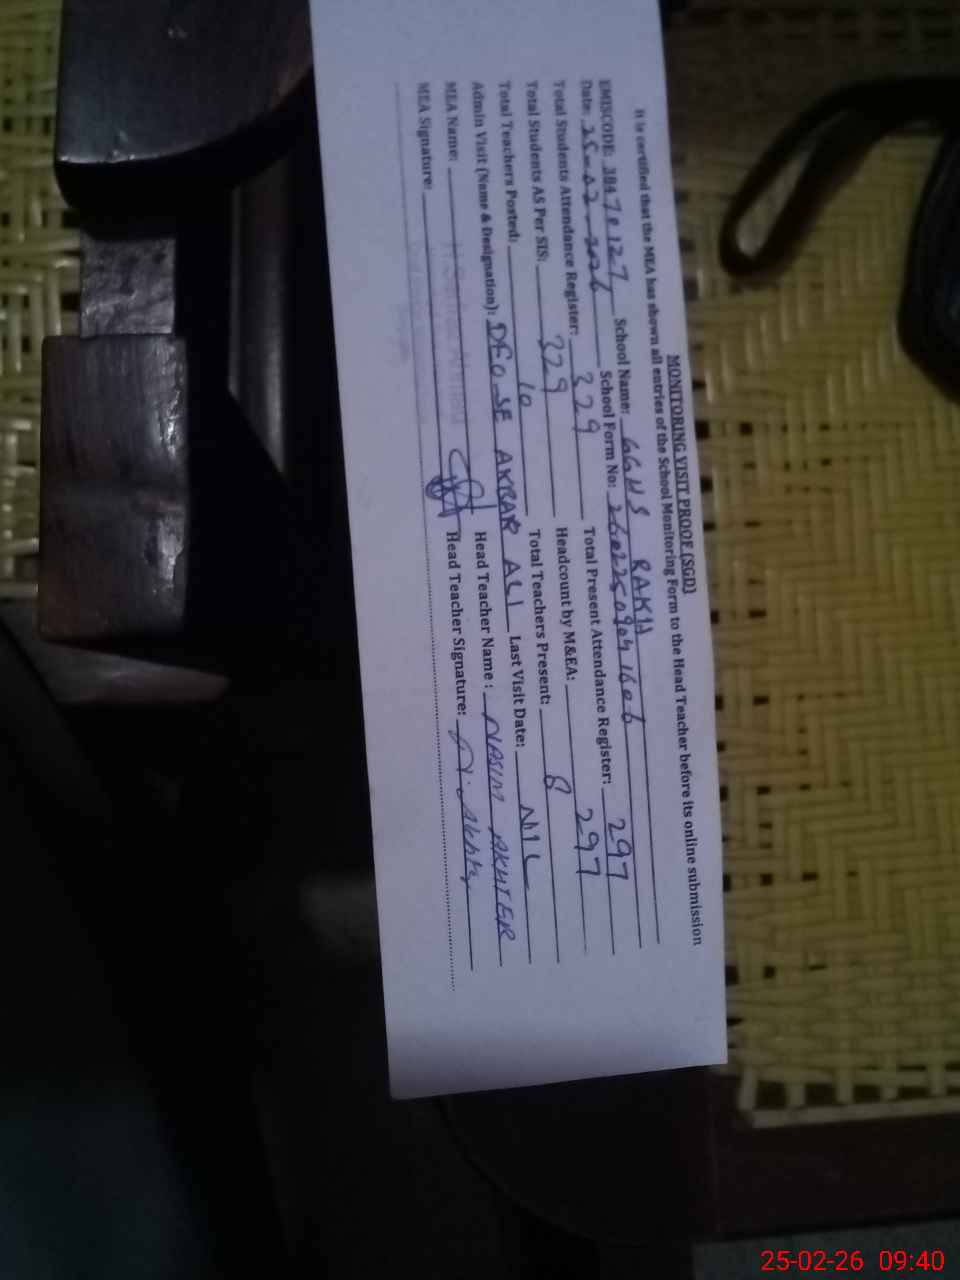 MONITORING VISIT PROOF (SGD)
It is certified that the MEA has shown all entries of the School Monitoring Form to the Head Teacher before its online submission
EMISCODE: 38470127 School Name: GGHS RAKH
Date: 25-02-2026 School Form No:
Total Students Attendance Register: 329 Total Present Attendance Register: 297
Total Students AS Per SIS: 329 Headcount by M&EA: 297
Total Teachers Posted: 10 Total Teachers Present: 8
Admin Visit (Name & Designation): DEO SE AKBAR ALI Last Visit Date: NIL
MEA Name: Head Teacher Name: NASIM AKHTER
MEA Signature: Head Teacher Signature:
25-02-26 09:40